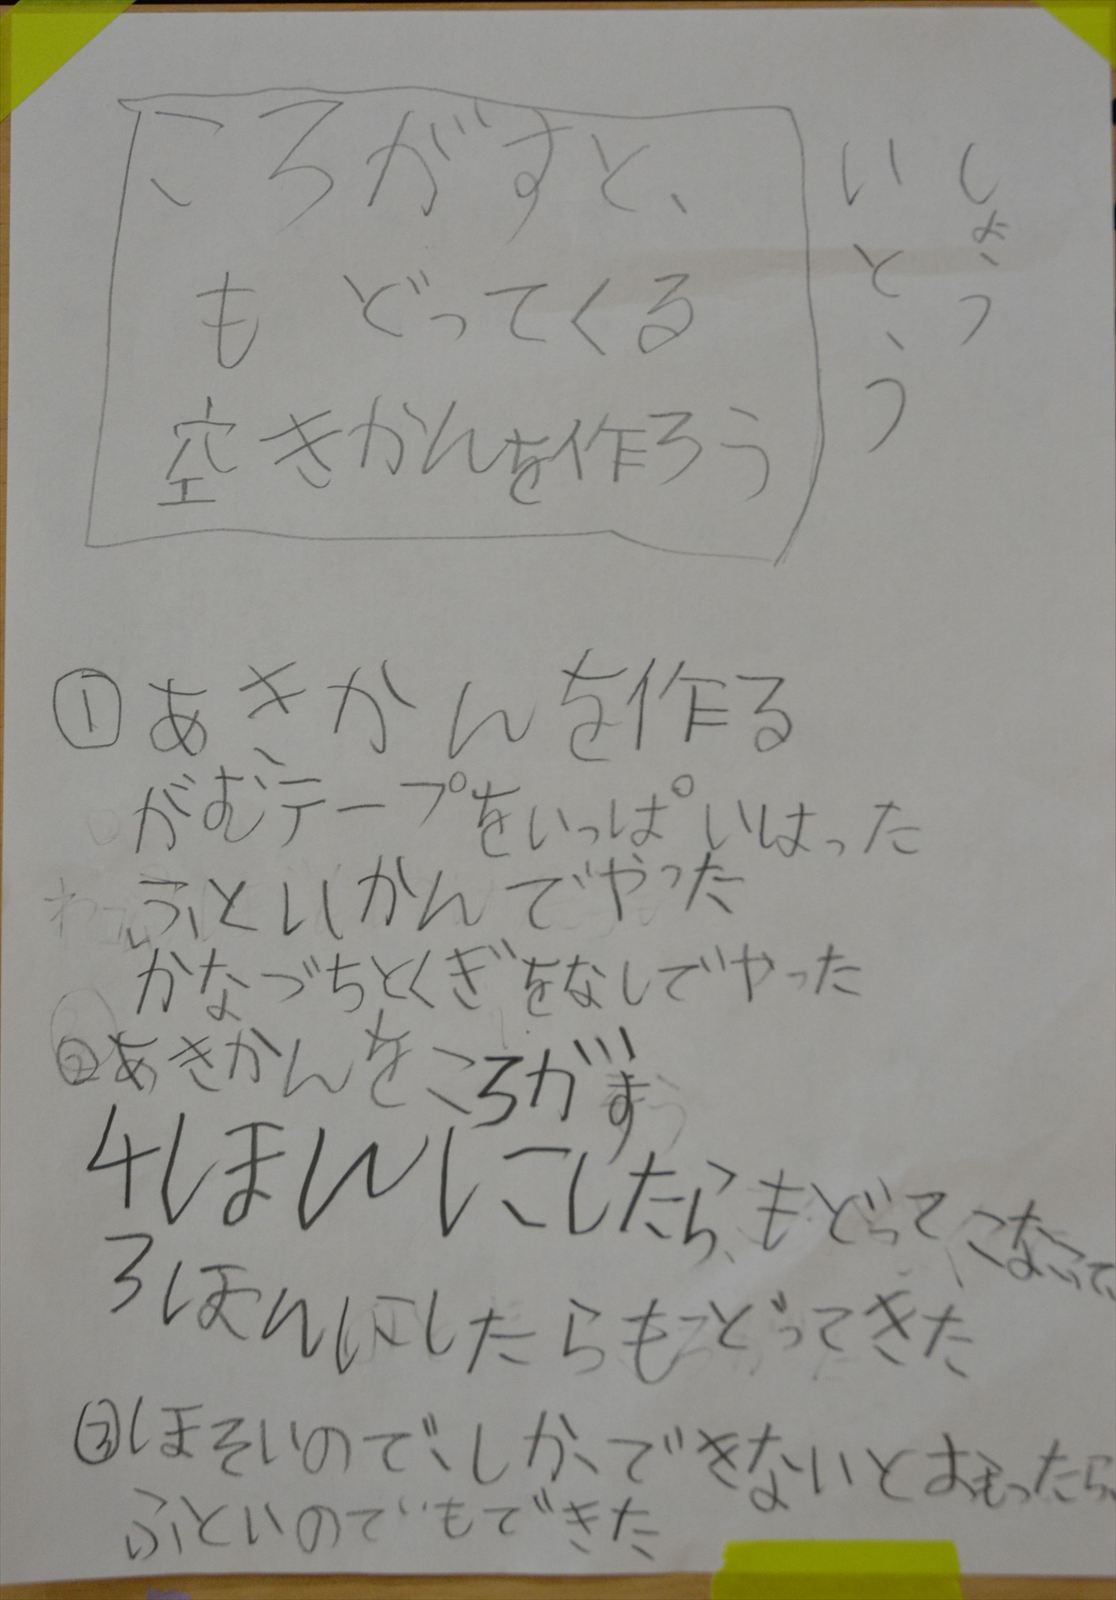 ころがすと、
もどってくる
空きかんを作ろう
しょう
いとう
① あきかんを作る
がむテープをいっぱいはった
ふといかんでやった
かなづちとくぎをなしでやった
②あきかんをころがす
4ほんにしたら、もどってこなくて、
3ぼんにしたらもどってきた
③ほそいので、しかできないとおもったら、
ふといのでもできた